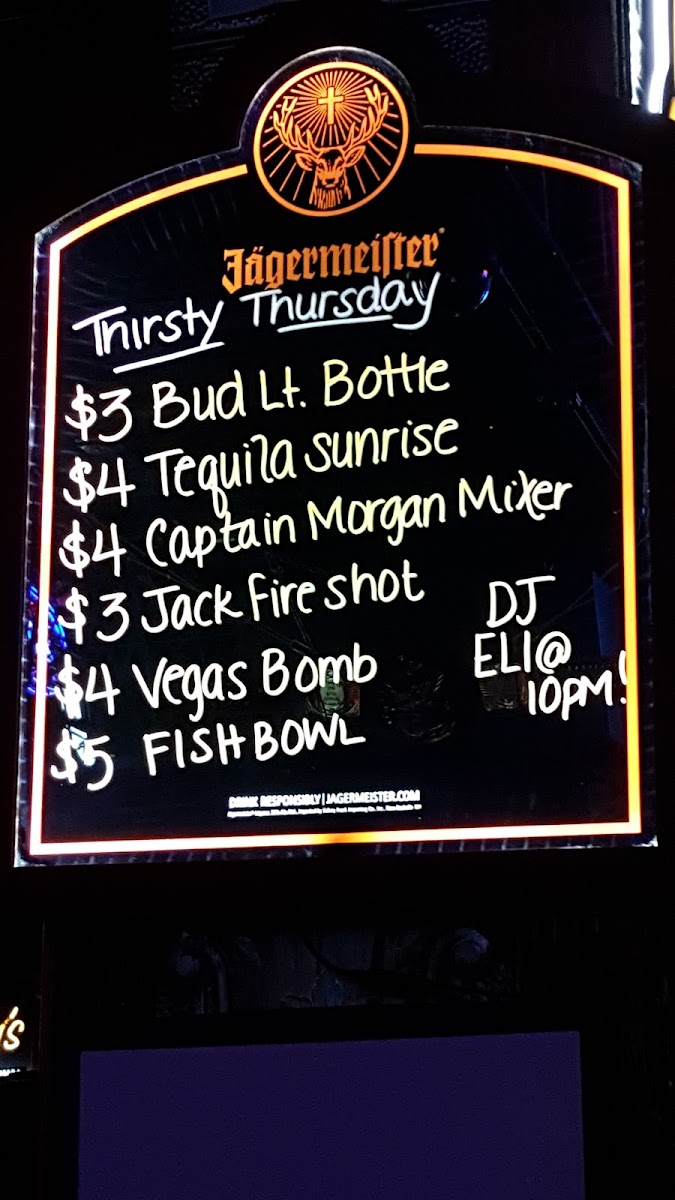 Jägermeiſter
Thirsty Thursday
$3 Bud Lt. Bottle
$4 Tequila Sunrise
$4 Captain Morgan Mixer
$3 Jack Fire shot
$4 Vegas Bomb
$5 FISH BOWL
DJ
ELI@
10PM!
DRINK RESPONSIBLY | JAGERMEISTER.COM
's